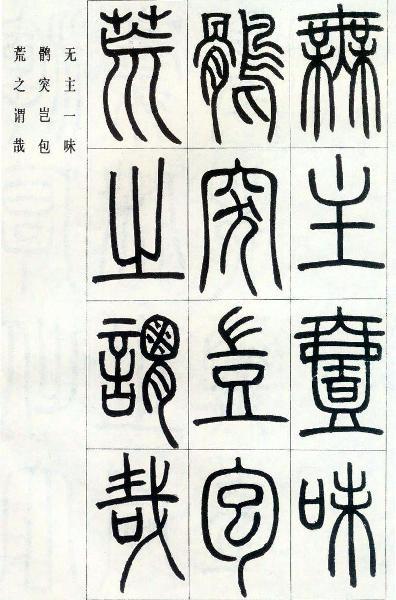 無主壹味
鶻突豈包
荒之謂哉
无主一味
鹘突岂包
荒之谓哉